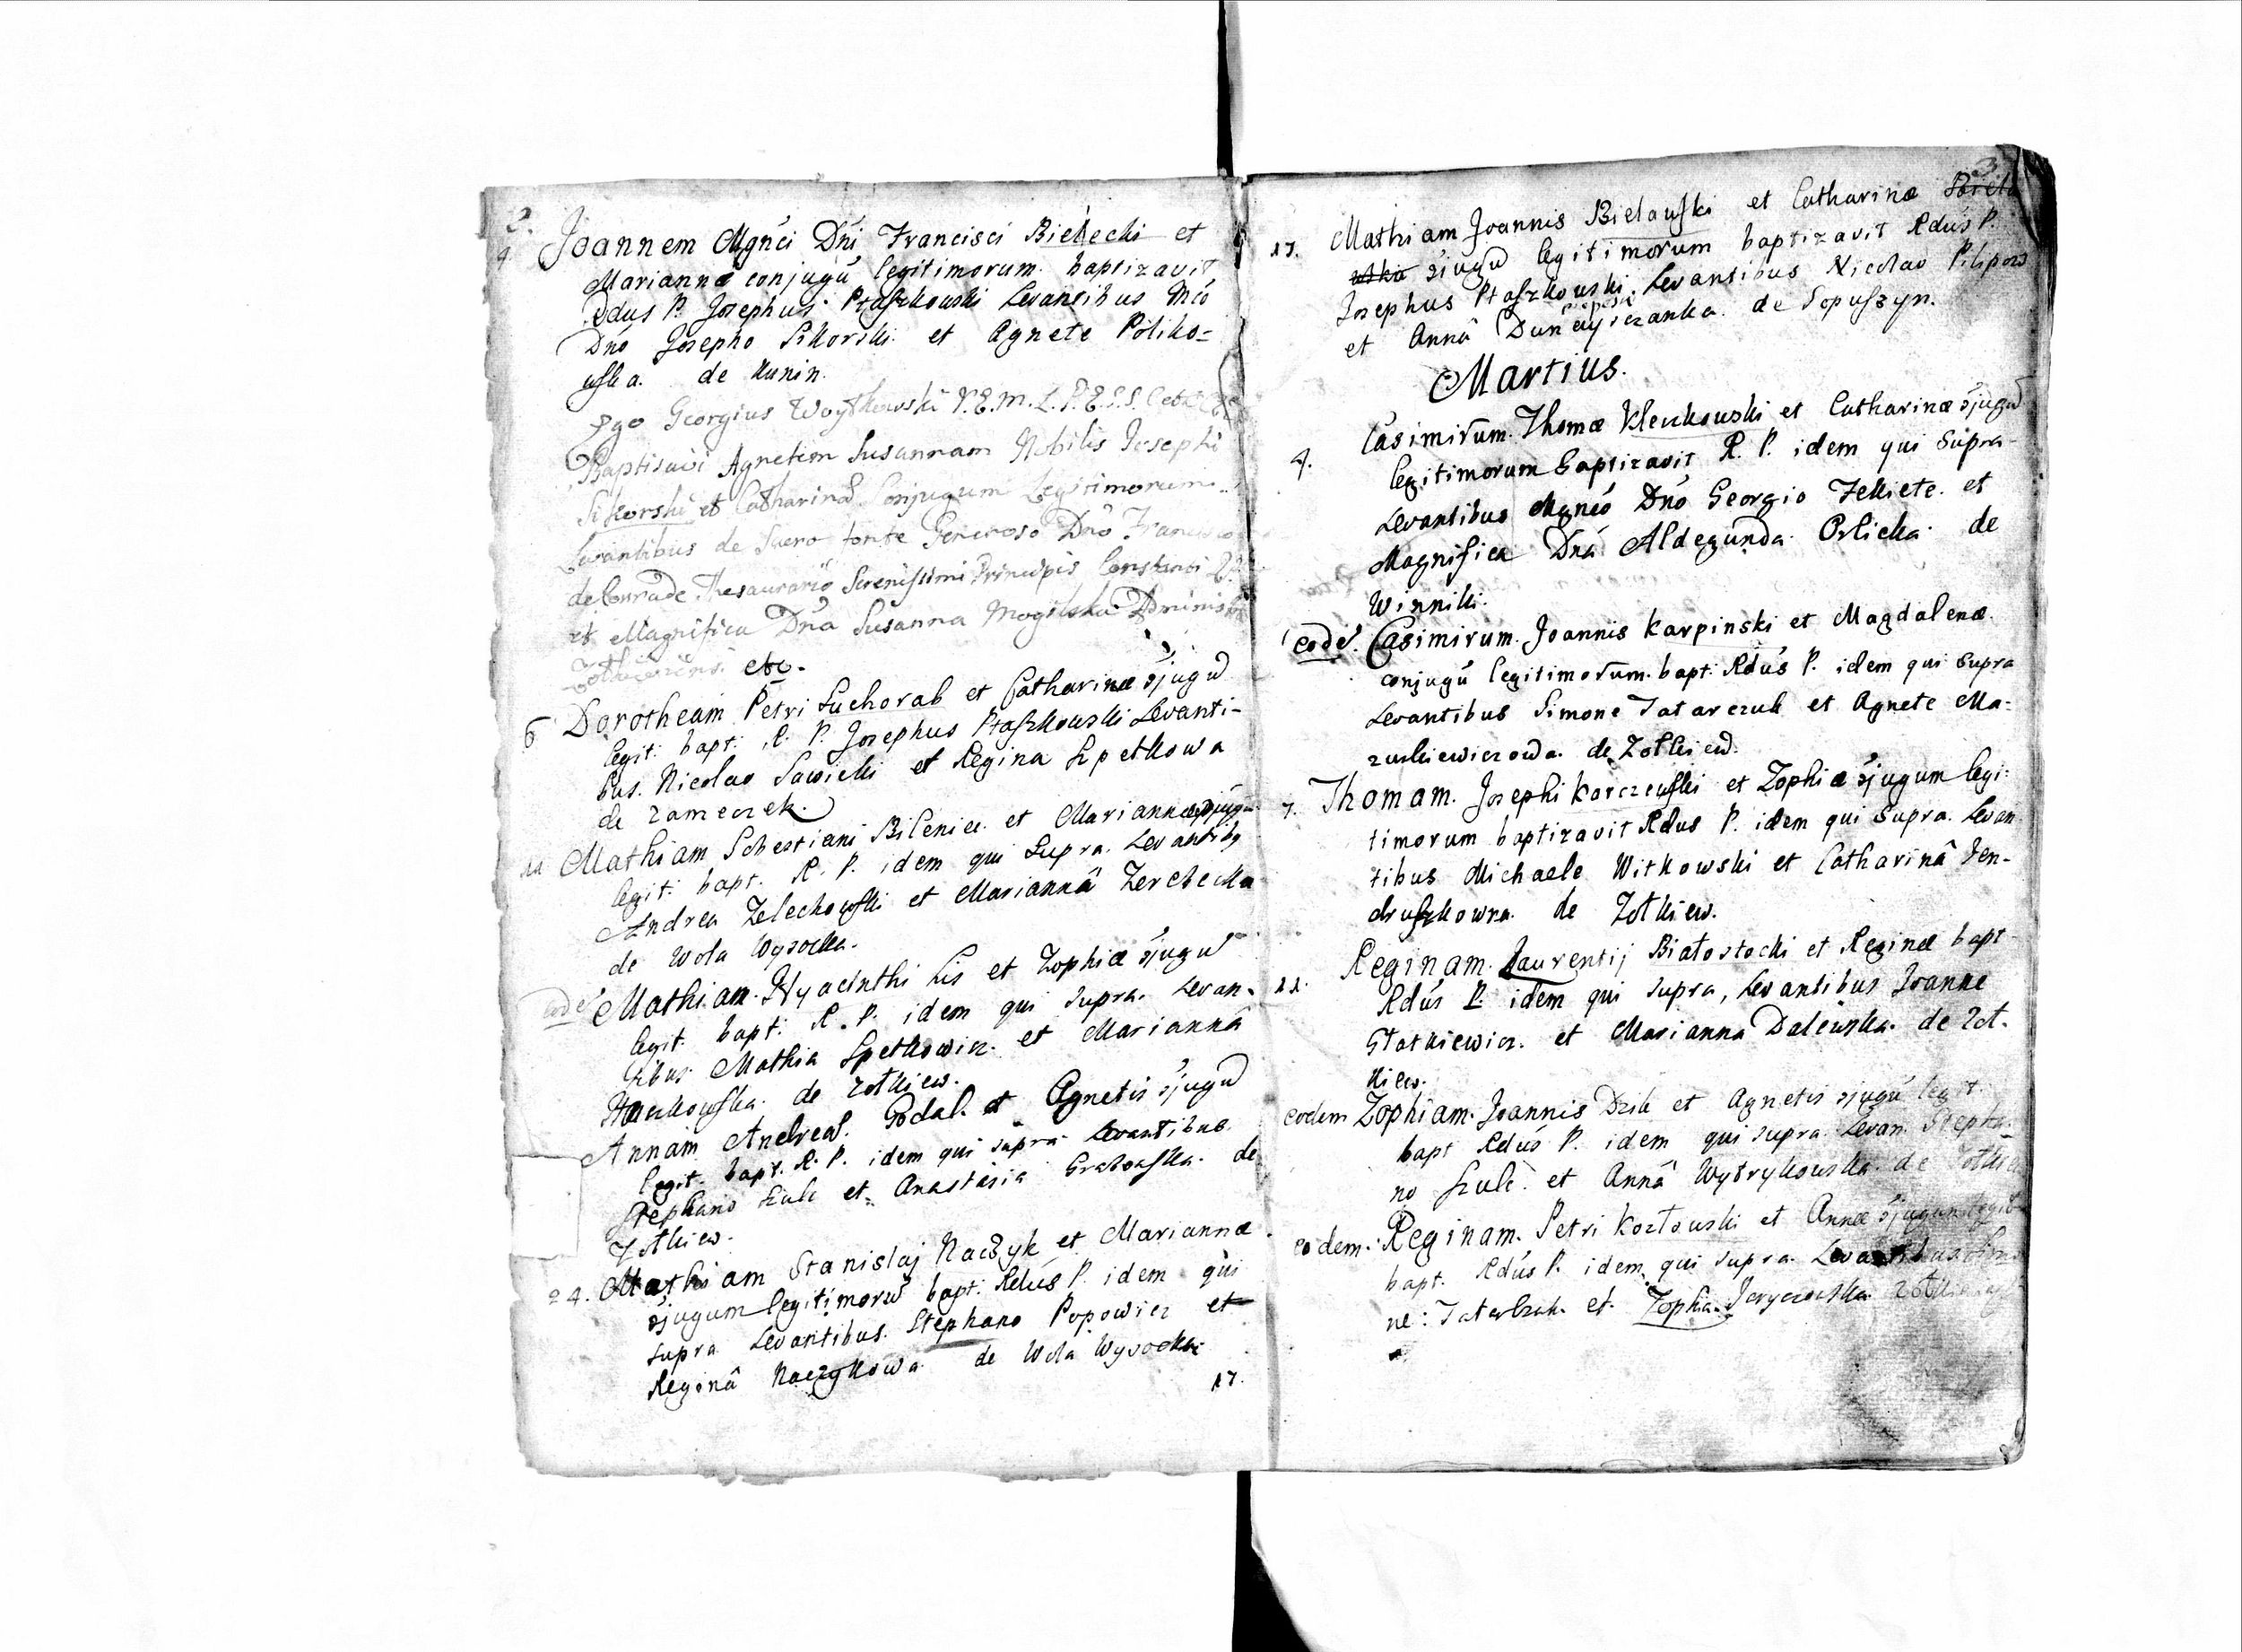 2.
4 Joannem Mgnci Dni Francisci Bielecki et
Mariannæ conjugu legitimorum baptizavit
Rdus P. Josephus Ptaszkowski Levantibus Mco
Dno Josepho Sikorski et Agnete Poliko=
wska. de Kunin.
Ego Georgius Woytkowski
Baptisavi Agnetem Susannam Nobilis Josephi
Sikorski et Catharinæ Conjugum Legitimorum
Levantibus de Sacro fonte Generoso Dno Francisco
de Thesaurario Serenissimi Principis Constanti
et Magnifica Dna Susanna Mogilska
etc.
6 Dorotheam Petri Suchorab et Catharinæ ɔjugu
legit: bapt: R. P. Josephus Ptaszkowski Levanti-
bus. Nicolao Sawicki et Regina Szpetkowa
de Zameczek.
Mathiam Sebestiani Bilenice et Mariannæ
legit: bapt. R. P. idem qui Supra. Levantibq
Andrea Zelechowski et Mariannâ Zerebecka
de Wola Wysocka.
eode Mathiam Hyacinthi Lis et Zophiæ ɔjugu
legit. bapt: R. P. idem qui supra. Levan-
tibus Mathia Szpetkowicz. et Mariannâ
de Zołkiew.
Annam Andreæ Podal. et Agnetis ɔjugu
legit. bapt. R. P. idem qui supra Levantibus
Stephano Szulc et Anastasia Grabowska. de
Zołkiew.
24. Mathiam Stanislaj Naczyk et Mariannæ
ɔjugum legitimoru bapt: Rdus P. idem qui
supra Levantibus. Stephano Popowicz et
Reginâ Naczykowa de Wola Wysocka
17.
3.
17. Mathiam Joannis Bielawski et Catharinæ Biela
wskie ɔjugu legitimorum baptizavit Rdus P.
Josephus Ptaszkowski. Levantibus Nicolao Pilipow
et Annâ de Sopuszyn.
Martius.
4. Casimirum. Thomæ Kleczkowski et Catharinæ ɔjugu
legitimorum baptizavit R. P. idem qui supra
Levantibus Magnco Dno Georgio et
Magnifica Dna Aldegunda Orlicka de
Winniki.
eode. Casimirum. Joannis Karpinski et Magdalenæ
conjugu legitimorum. bapt: Rdus P. idem qui supra
Levantibus Simone Tatarczuk et Agnete Ma=
zurkiewiczowa. de Zołkiew.
7. Thomam. Josephi Korczewski et Zophiæ ɔjugum legi:
timorum baptizavit Rdus P. idem qui supra. Levan
tibus Michaele Witkowski et Catharinâ Jen-
druszkowna. de Zołkiew.
11. Reginam. Laurentij Białostocki et Reginæ bapt
Rdus P. idem qui supra, Levantibus Joanne
Statkiewicz. et Marianna Dalewska. de Zoł.
kiew.
eodem Zophiam. Joannis Dzik et Agnetis ɔjugu legit.
bapt Rdus P. idem qui supra. Levan. Stepha
no Szulc. et Annâ Wytrykowska. de Zołkie
eodem. Reginam. Petri Kozłowski et Annæ ɔjugum legit
bapt. Rdus P. idem qui supra. Levantibus
ne: Tatarczuk. et Zophia.